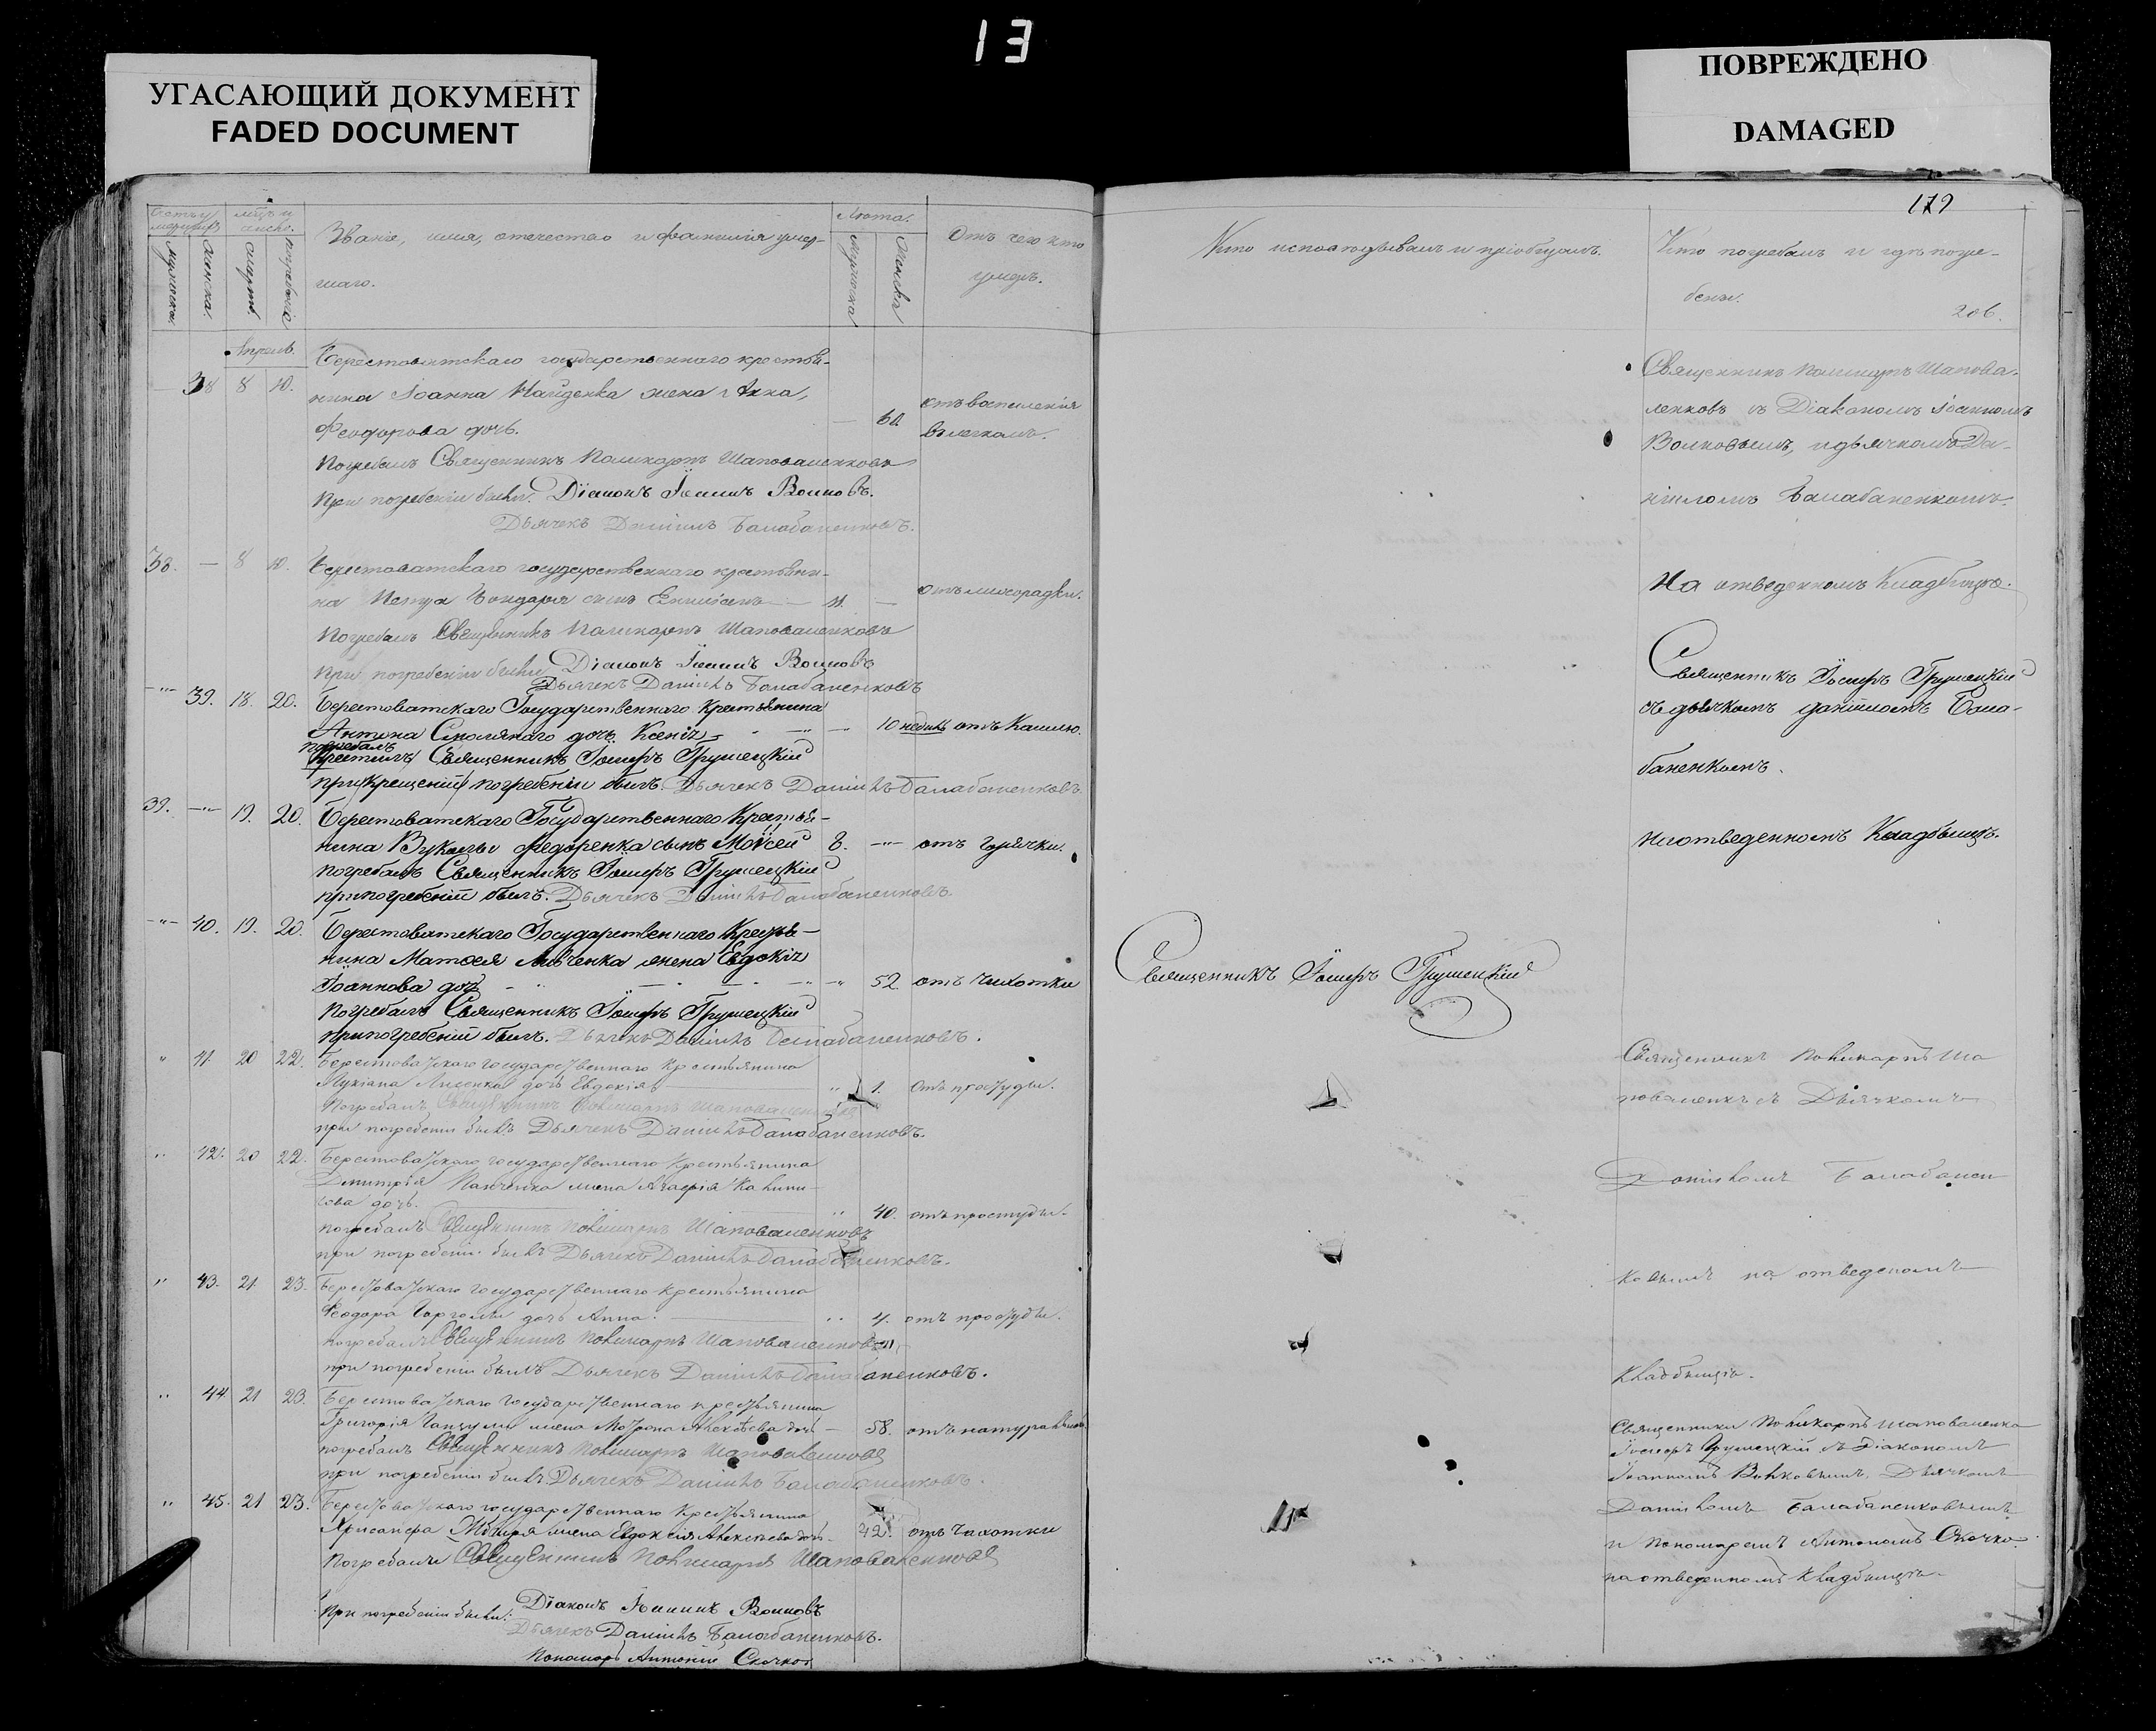 13
УГАСАЮЩИЙ ДОКУМЕНТ
FADED DOCUMENT
ПОВРЕЖДЕНО
DAMAGED
179
Званіе, имя, отечество и фамилія умер-
шаго.
Лѣта.
Отъ чего кто
умеръ.
мужеска.
женска.
смерти.
погребенія
Мужеска
Женска
Апрель.
38 8 10. Берестоватскаго государственнаго крестья-
нина Іоанна Найденка жена Анна,
Феодорова дочь. — отъ воспаленія
въ легкомъ.
Погребалъ Священникъ Поликарпъ Шаповаленковъ
При погребеніи были: Діаконъ Іоаннъ Волковъ.
Дьячекъ Даніилъ Балабаненковъ.
38. — 8 10. Берестоватскаго государственнаго крестьяни-
на Бондаря сынъ — отъ лихорадки.
Погребалъ Священникъ Поликарпъ Шаповаленковъ
При погребеніи были Діаконъ Іоаннъ Волковъ
Дьячекъ Даніилъ Балабаненковъ
-"- 39. 18. 20. Берестоватскаго Государственнаго Крестьянина
Антона Смолянаго дочь Ксенія - -"- 10 недель отъ Кашлю.
погребалъ
Крестилъ Священникъ Іосифъ Грушецкій
при крещеніи погребеніи былъ. Дьячекъ Даніилъ Балабаненковъ.
39. -"- 19. 20. Берестоватскаго Государственнаго Крестья-
нина Вуколы Федоренка сынъ Моѵсей 8. -"- отъ горячки.
погребалъ Священникъ Іосифъ Грушецкій
при погребеніи былъ. Дьячекъ Даніилъ Балабаненковъ.
-"- 40. 19. 20. Берестоватскаго Государственнаго Крестья-
нина Матѳея жена Евдокія
Іоаннова дочь - -"- 52. отъ чихотки
погребалъ Священникъ Іосифъ Грушецкій
при погребеніи былъ. Дьячекъ Даніилъ Балабаненковъ.
" 41. 20 22. Берестоватскаго государственнаго Крестьянина
Лукіана Лисенка дочь Евдокія " 1. отъ простуды.
Погребалъ Священникъ Поликарпъ Шаповаленковъ
при погребеніи былъ Дьячекъ Даніилъ Балабаненковъ.
" 42. 20 22. Берестоватскаго государственнаго Крестьянина
Димитрія Панченка жена Агафія Калини-
кова дочь. " 40. отъ простуды.
погребалъ Священникъ Поликарпъ Шаповаленковъ
при погребеніи былъ Дьячекъ Даніилъ Балабаненковъ.
" 43. 21. 23. Берестоватскаго государственнаго Крестьянина
Феодора дочь Анна. " 4. отъ простуды.
погребалъ Священникъ Поликарпъ Шаповаленковъ
при погребеніи былъ Дьячекъ Даніилъ Балабаненковъ.
" 44. 21 23. Берестоватскаго Государственнаго крестьянина
Григорія жена Матрона Алексѣева дочь — 58. отъ
погребалъ Священникъ Поликарпъ Шаповаленковъ
при погребеніи былъ Дьячекъ Даніилъ Балабаненковъ.
" 45. 21 23. Берестоватскаго государственнаго Крестьянина
жена Евдокія Алексѣева дочь. 42. отъ чахотки
Погребалъ Священникъ Поликарпъ Шаповаленковъ
При погребеніи были: Діаконъ Іоаннъ Волковъ
Дьячекъ Даніилъ Балабаненковъ.
Пономарь Антоній Скочко
Кто исповѣдывалъ и пріобщалъ.
Кто погребалъ и гдѣ погре-
бены.
206.
Священникъ Поликарпъ Шапова-
ленковъ съ Діакономъ Іоанномъ
Волковымъ, и дьячкомъ Да-
ніиломъ Балабаненкомъ.
На отведенномъ Кладбищѣ.
Священникъ Іосифъ Грушецкій
съ дьячкомъ даніиломъ Бала-
баненкомъ.
на отведенномъ Кладбыще.
Священникъ Іосифъ Грушецкій
Священникъ Поликарпъ Ша
поваленкъ съ Дьячкомъ
Даниломъ Балабанен
ковымъ на отведеномъ
Кладбищѣ.
Священники Поликарпъ Шаповаленко
Іосифъ Грушецкій съ Діакономъ
Іоанномъ Волковымъ, Дьячкомъ
Даниломъ Балабаненковымъ
и пономаремъ Антономъ Скочко.
на отведенномъ Кладбищѣ.